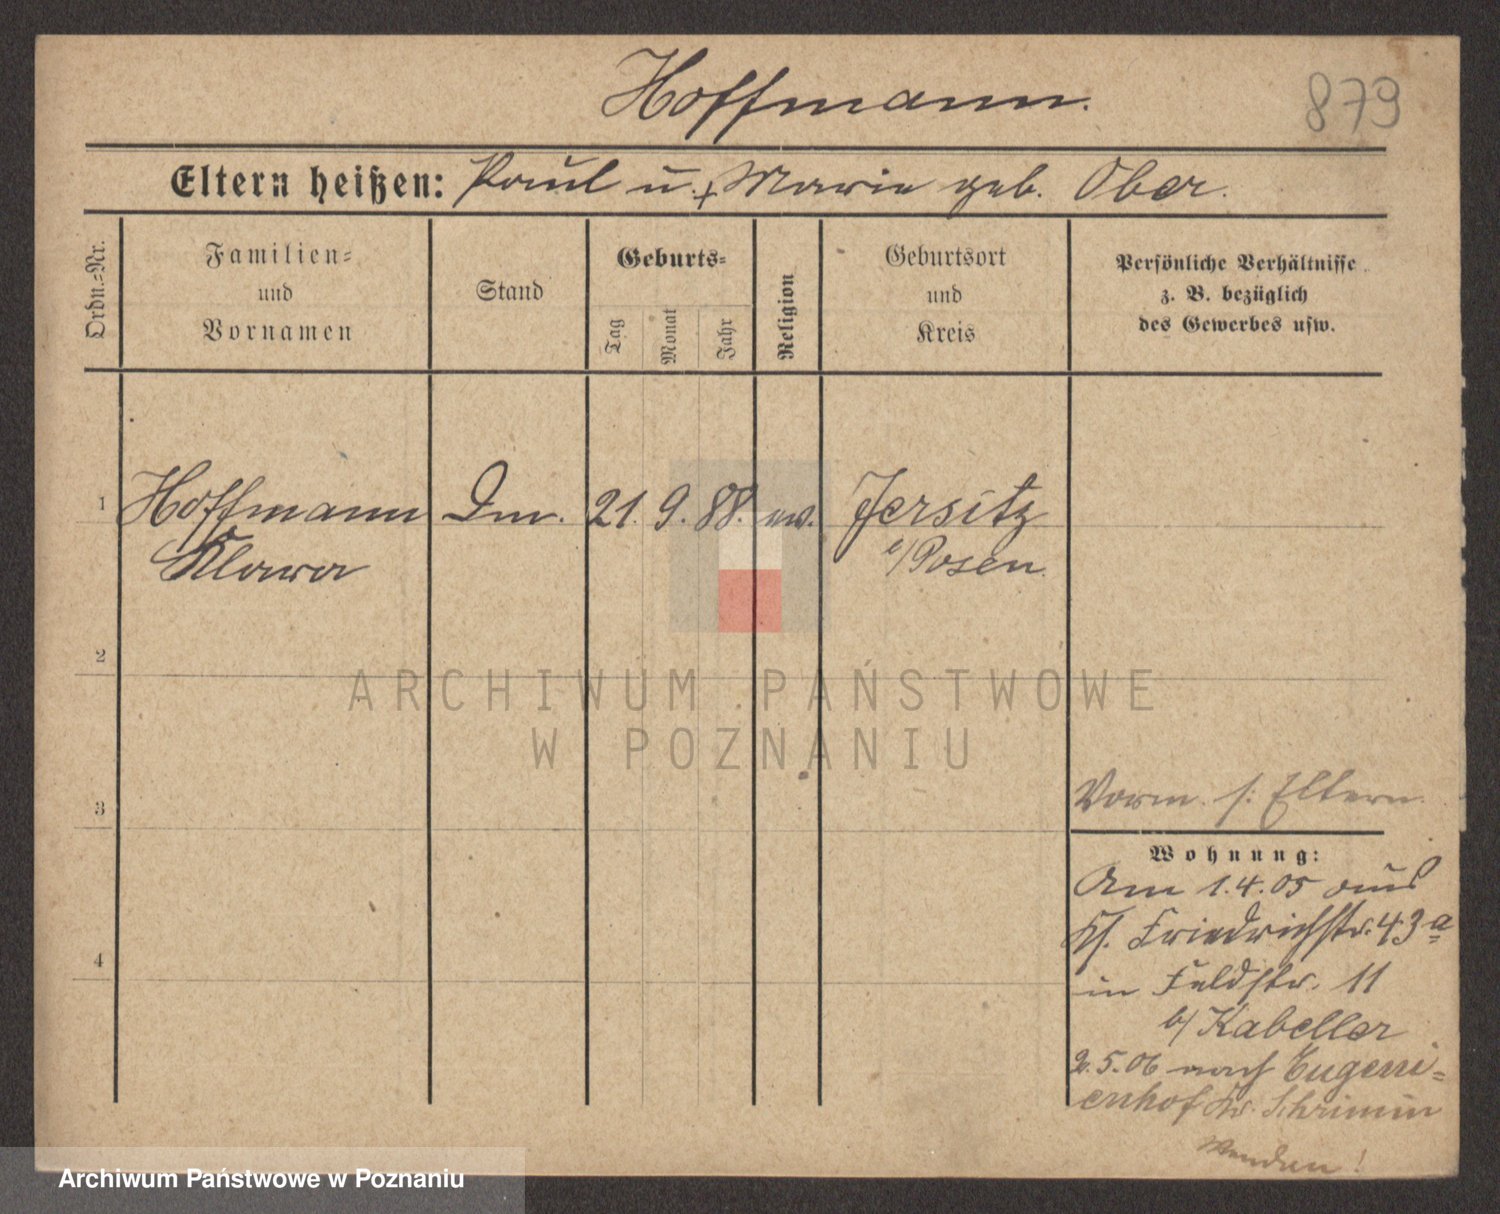 Hoffmann.
879
Eltern heißen: Paul u. + Marie geb. Ober.
Ordn.-Nr.
Familien-
und
Vornamen
Stand
Geburts-
Tag
Monat
Jahr
Religion
Geburtsort
und
Kreis
Persönliche Verhältnisse
z. B. bezüglich
des Gewerbes usw.
1 Hoffmann 21. 9. 88. ev. Jersitz
Klara b/Posen.
2
3
4
ARCHIWUM PAŃSTWOWE
W POZNANIU
Vorm. s. Eltern.
Wohnung:
Am 1.4.05 aus
Ks. Friedrichstr. 43a
in Feldstr. 11
b/ Kabeller
2.5.06 nach Eugeni-
enhof Kr. Schrimm
Wenden!
Archiwum Państwowe w Poznaniu